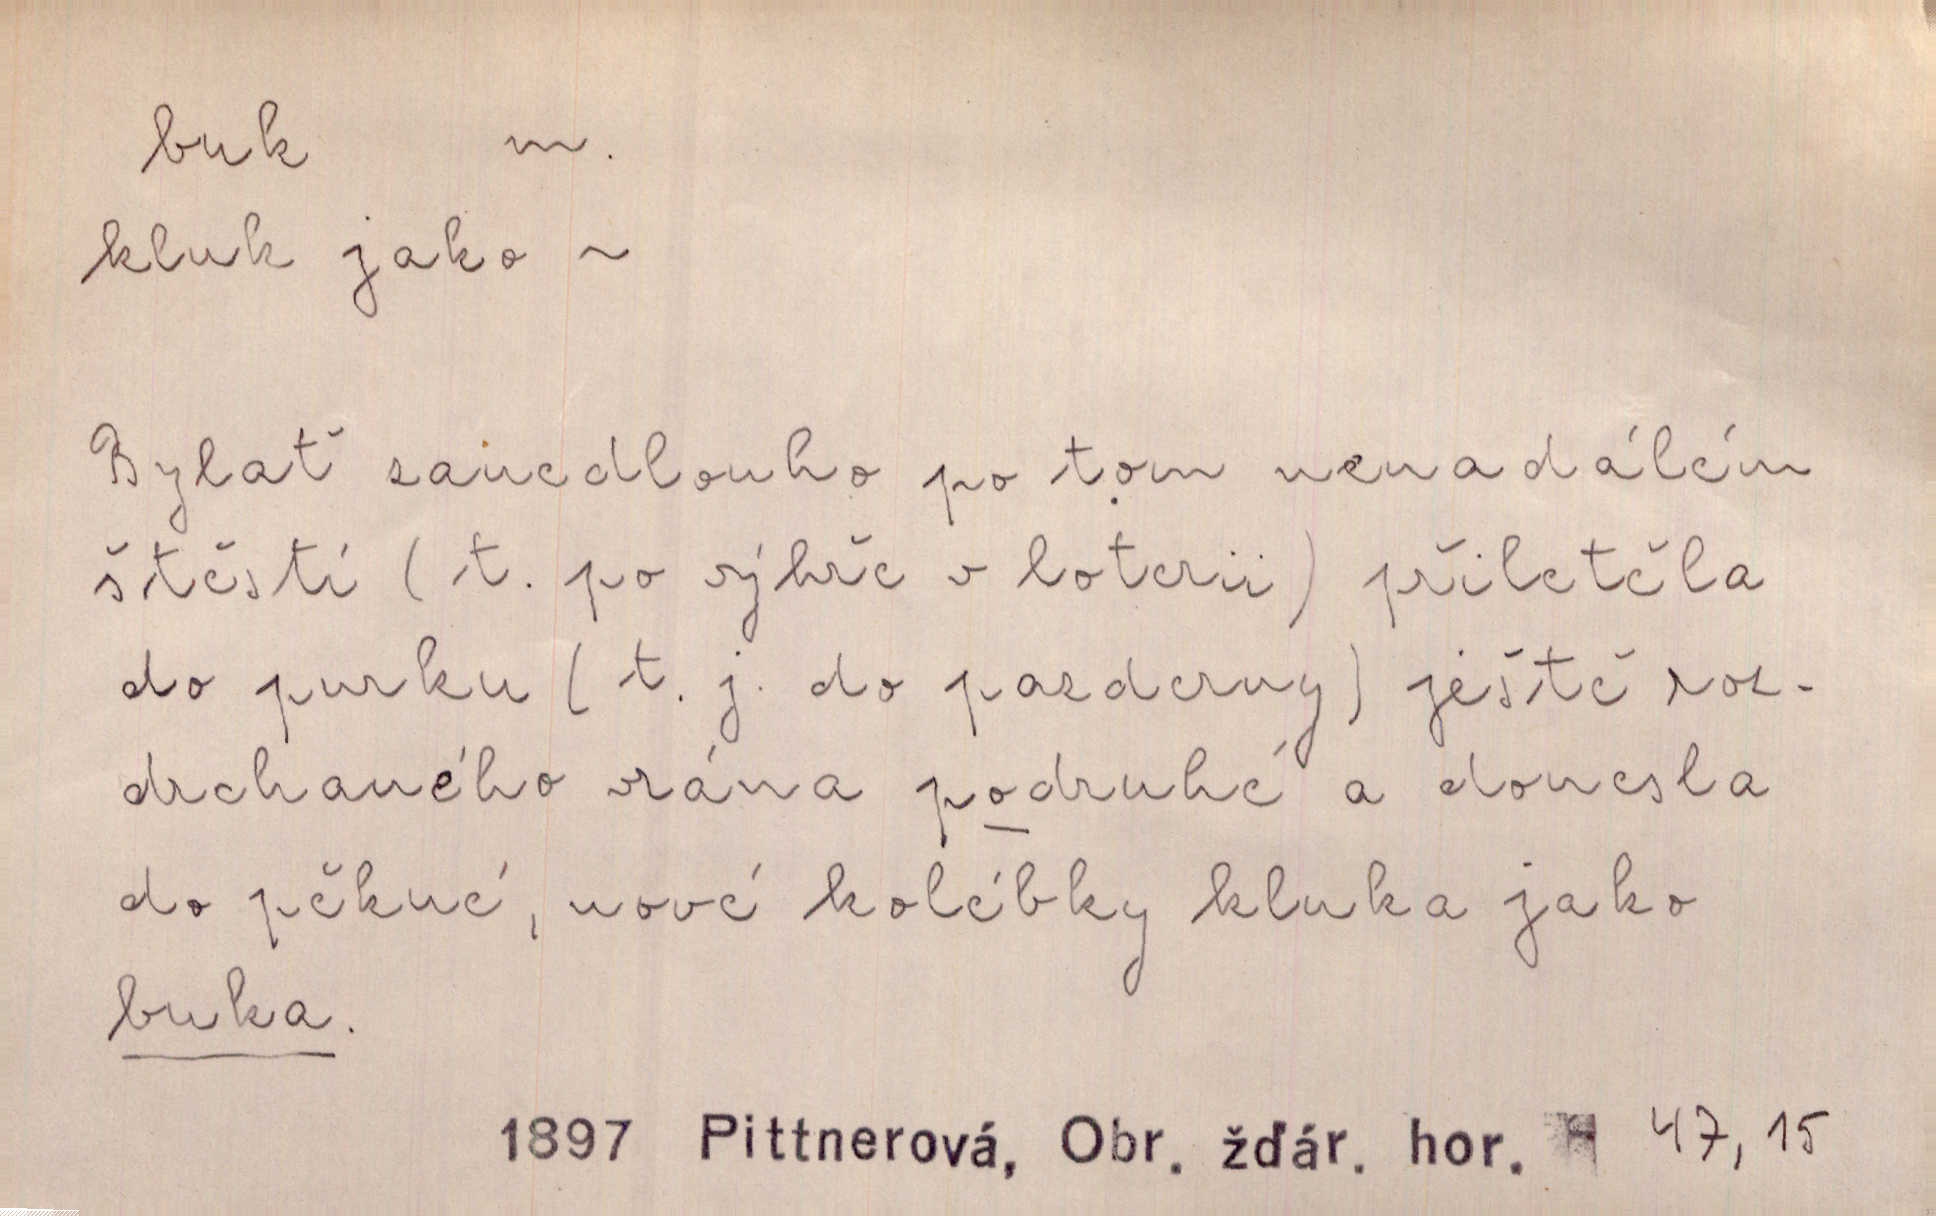 buk m.
kluk jako ~
Bylať zanedlouho po tom nenadálém
štěstí (t. po výhře v loterii) přiletěla
do purku (t. j. do pazderny) ještě roz-
drchaného vrána podruhé a donesla
do pěkné, nové kolébky kluka jako
buka.
1897 Pittnerová, Obr. žďár. hor. 47, 15